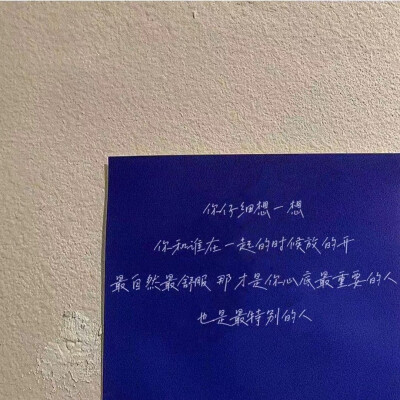 你仔细想一想
你和谁在一起的时候放的开
最自然最舒服 那才是你心底最重要的人
也是最特别的人